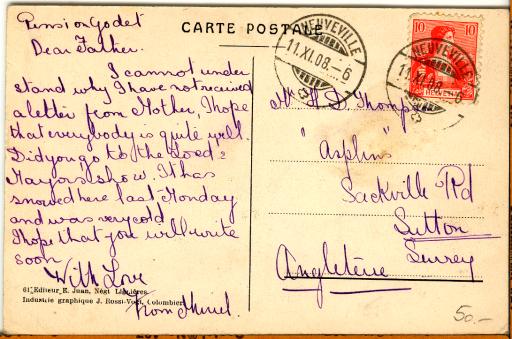 Pension Godet
Dear Father.
I cannot under
stand why I have not received
a letter from Mother, I hope
that everybody is quite well.
Did you go to the Lord
Mayors show. It has
snowed here last Monday
and was very cold
I hope that you will write
soon
With Love
from Muriel.
61 Editeur E. Juan, Négt Lignières
Industrie graphique J. Rossi-Vogt, Colombier
CARTE POSTALE
NEUVEVILLE
11.XI.08.-6
NEUVEVILLE
11.XI.08.-6
10 10
HELVETIA
Mr H. S. Thompson
"Asplins"
Sackville Rd
Sutton
Surrey
Angleterre
50.-